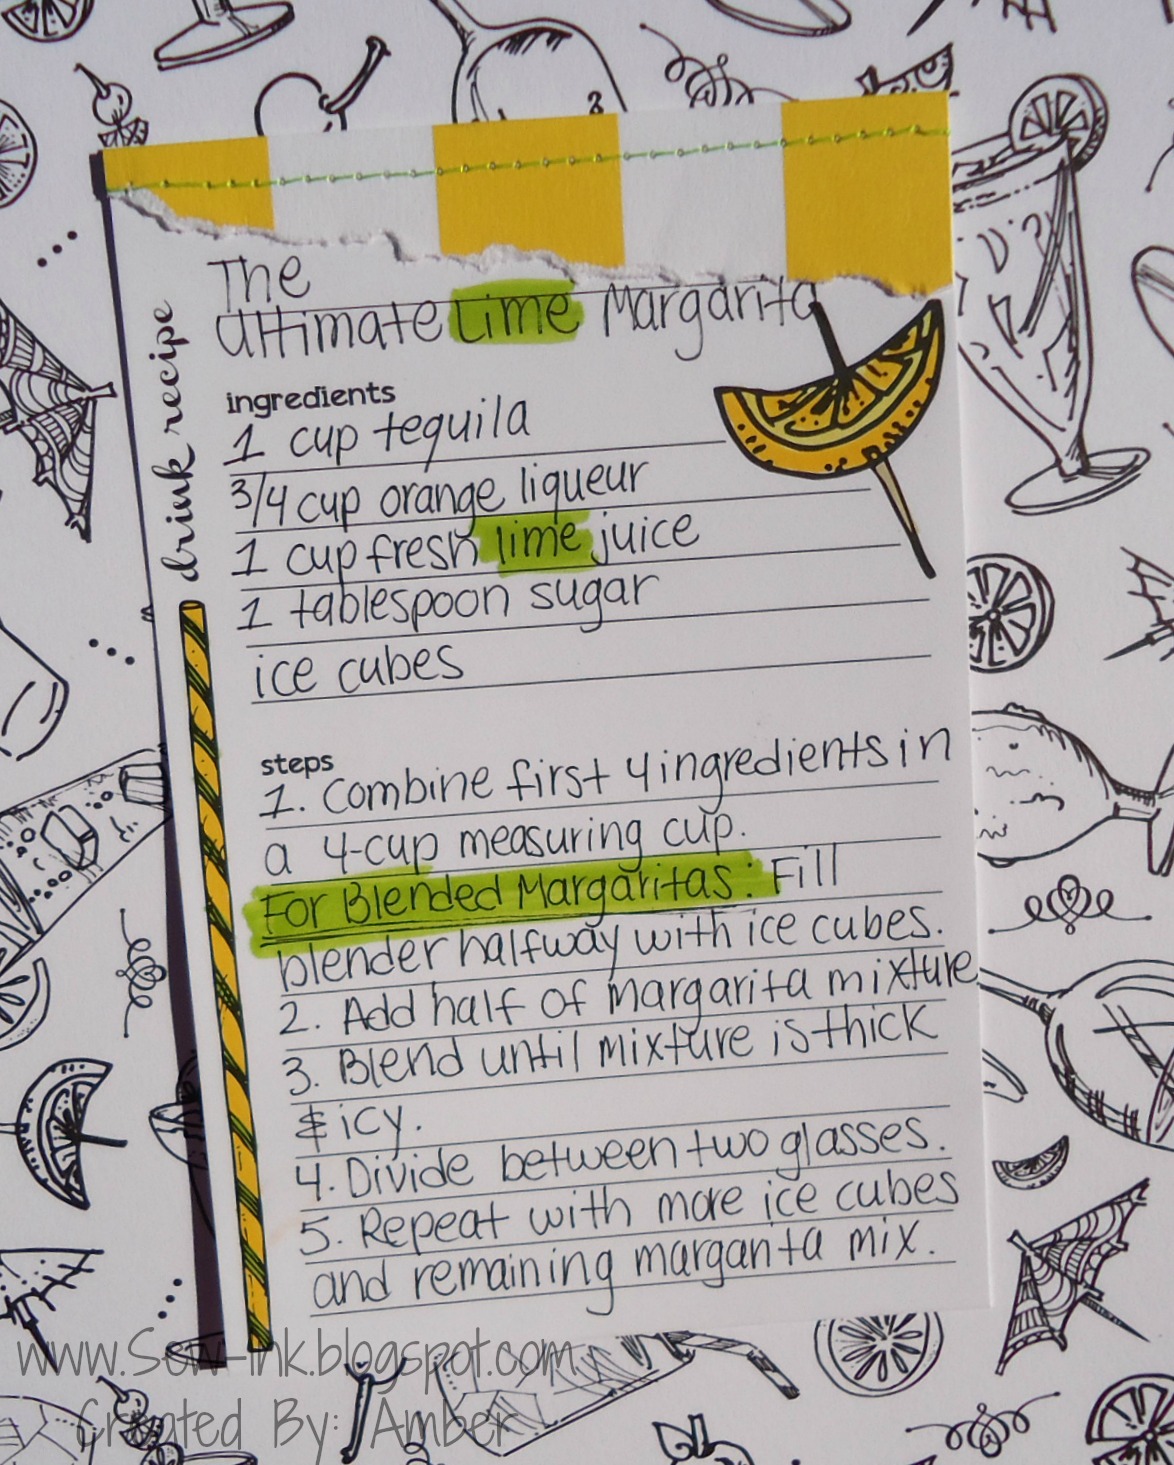 The
Ultimate Lime Margarita
drink recipe
ingredients
1 cup tequila
3/4 cup orange liqueur
1 cup fresh lime juice
1 tablespoon sugar
ice cubes
steps
1. Combine first 4 ingredients in
a 4-cup measuring cup.
For Blended Margaritas: Fill
blender halfway with ice cubes.
2. Add half of margarita mixture
3. Blend until mixture is thick
& icy.
4. Divide between two glasses.
5. Repeat with more ice cubes
and remaining margarita mix.
www.Sew-ink.blogspot.com
Created By: Amber